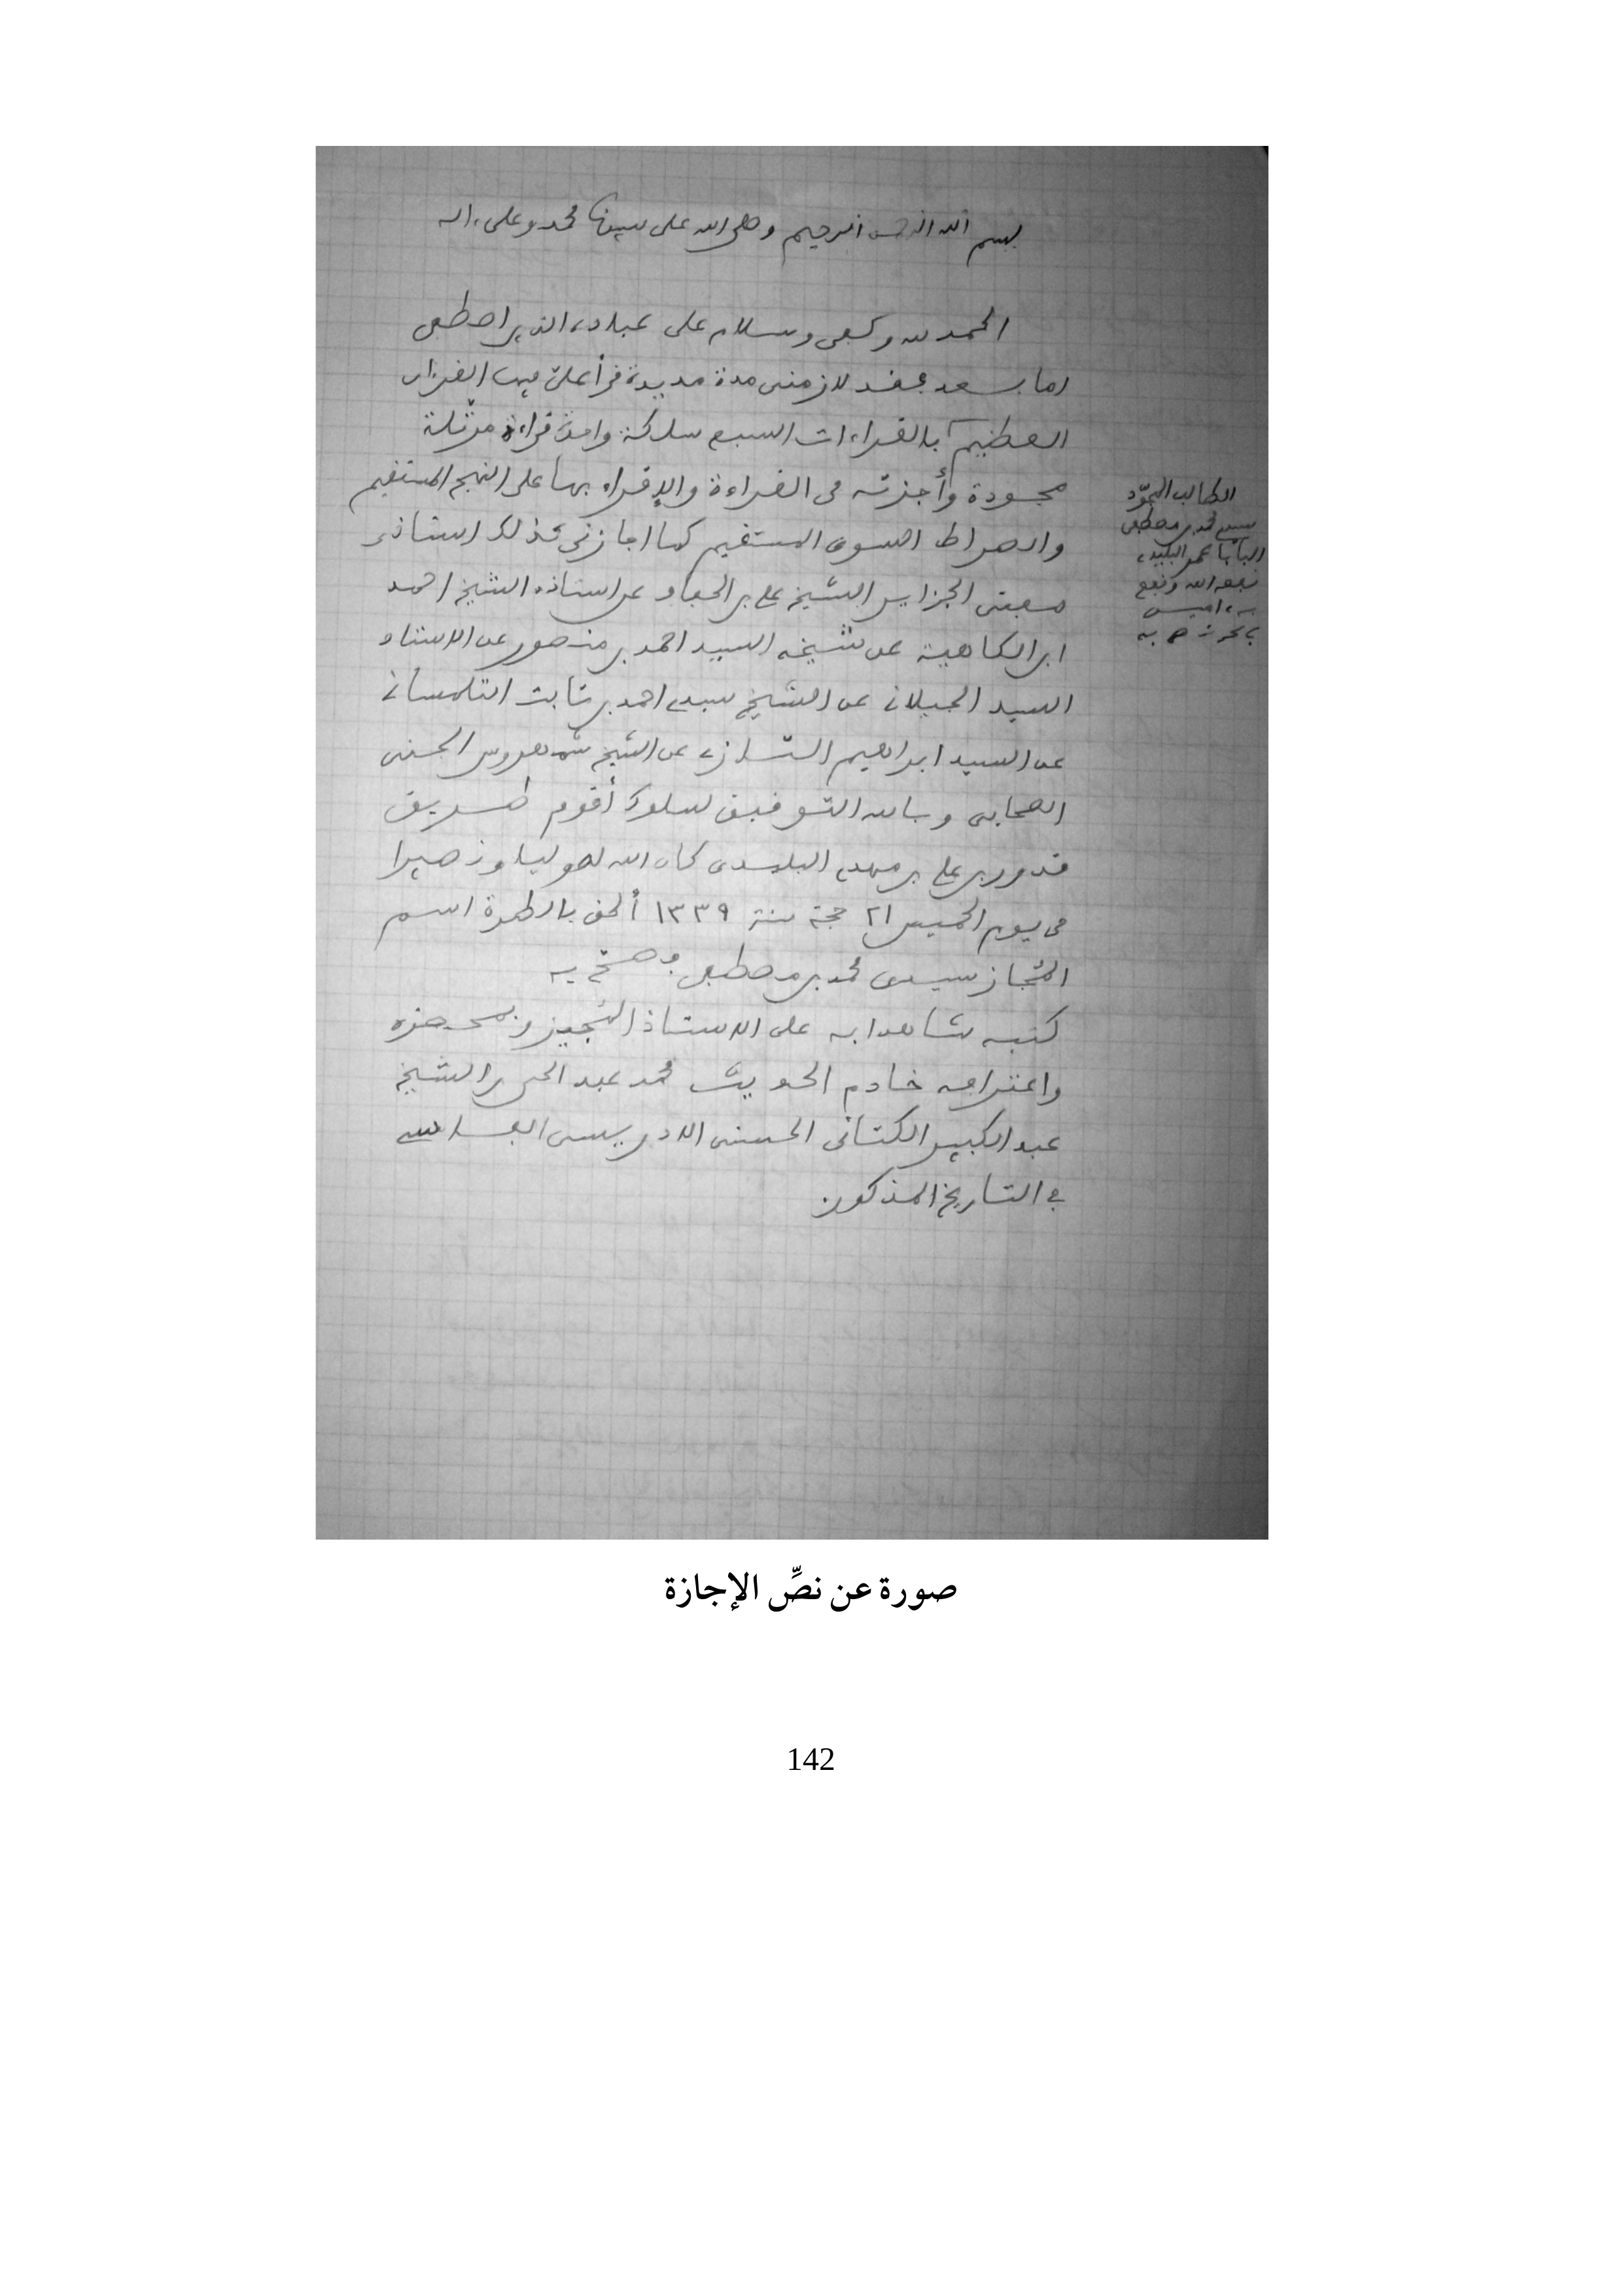 بسم الله الرحمن الرحيم وصلى الله على سيدنا محمد وعلى ءاله
الحمد لله وكفى وسلام على عباده الذين اصطفى
اما بعد فقد لازمنى مدة مديدة قرأ علىّ فيها القرءان
العظيم بالقراءات السبع سلكة واحدة قراءة مرتّلة
مجودة وأجزته فى القراءة والإقراء بها على النهج المستقيم
والصراط السوى المستقيم كما اجازنى بذلك استاذى
مفتى الجزاير الشيخ على بن الحفاف عن استاذه الشيخ احمد
ابن الكاهية عن شيخه السيد احمد بن منصور عن الاستاذ
السيد الجيلانى عن الشيخ سيدى احمد بن ثابت التلمسانى
عن السيد ابراهيم التازى عن الشيخ شمهروس الجنى
الصحابى وبالله التوفيق لسلوك أقوم طريق
قدور بن على بن مهدى البليدى كان الله له وليا ونصيرا
فى يوم الخميس ٢١ حجة سنة ١٣٣٩ ألحق بالطرة اسم
المُجاز سيدى محمد بن مصطفى وصحّ به
كتبه شاهدا به على الاستاذ المُجيز وبمحضره
واعترافه خادم الحديث محمد عبد الحى بن الشيخ
عبد الكبير الكتانى الحسنى الادريسى الفاسى
فى التاريخ المذكور
الطالب المجوّد
سيدى محمد بن مصطفى
البليدى
نفعه الله ونفع
به ءامين
صورة عن نصِّ الإجازة
142